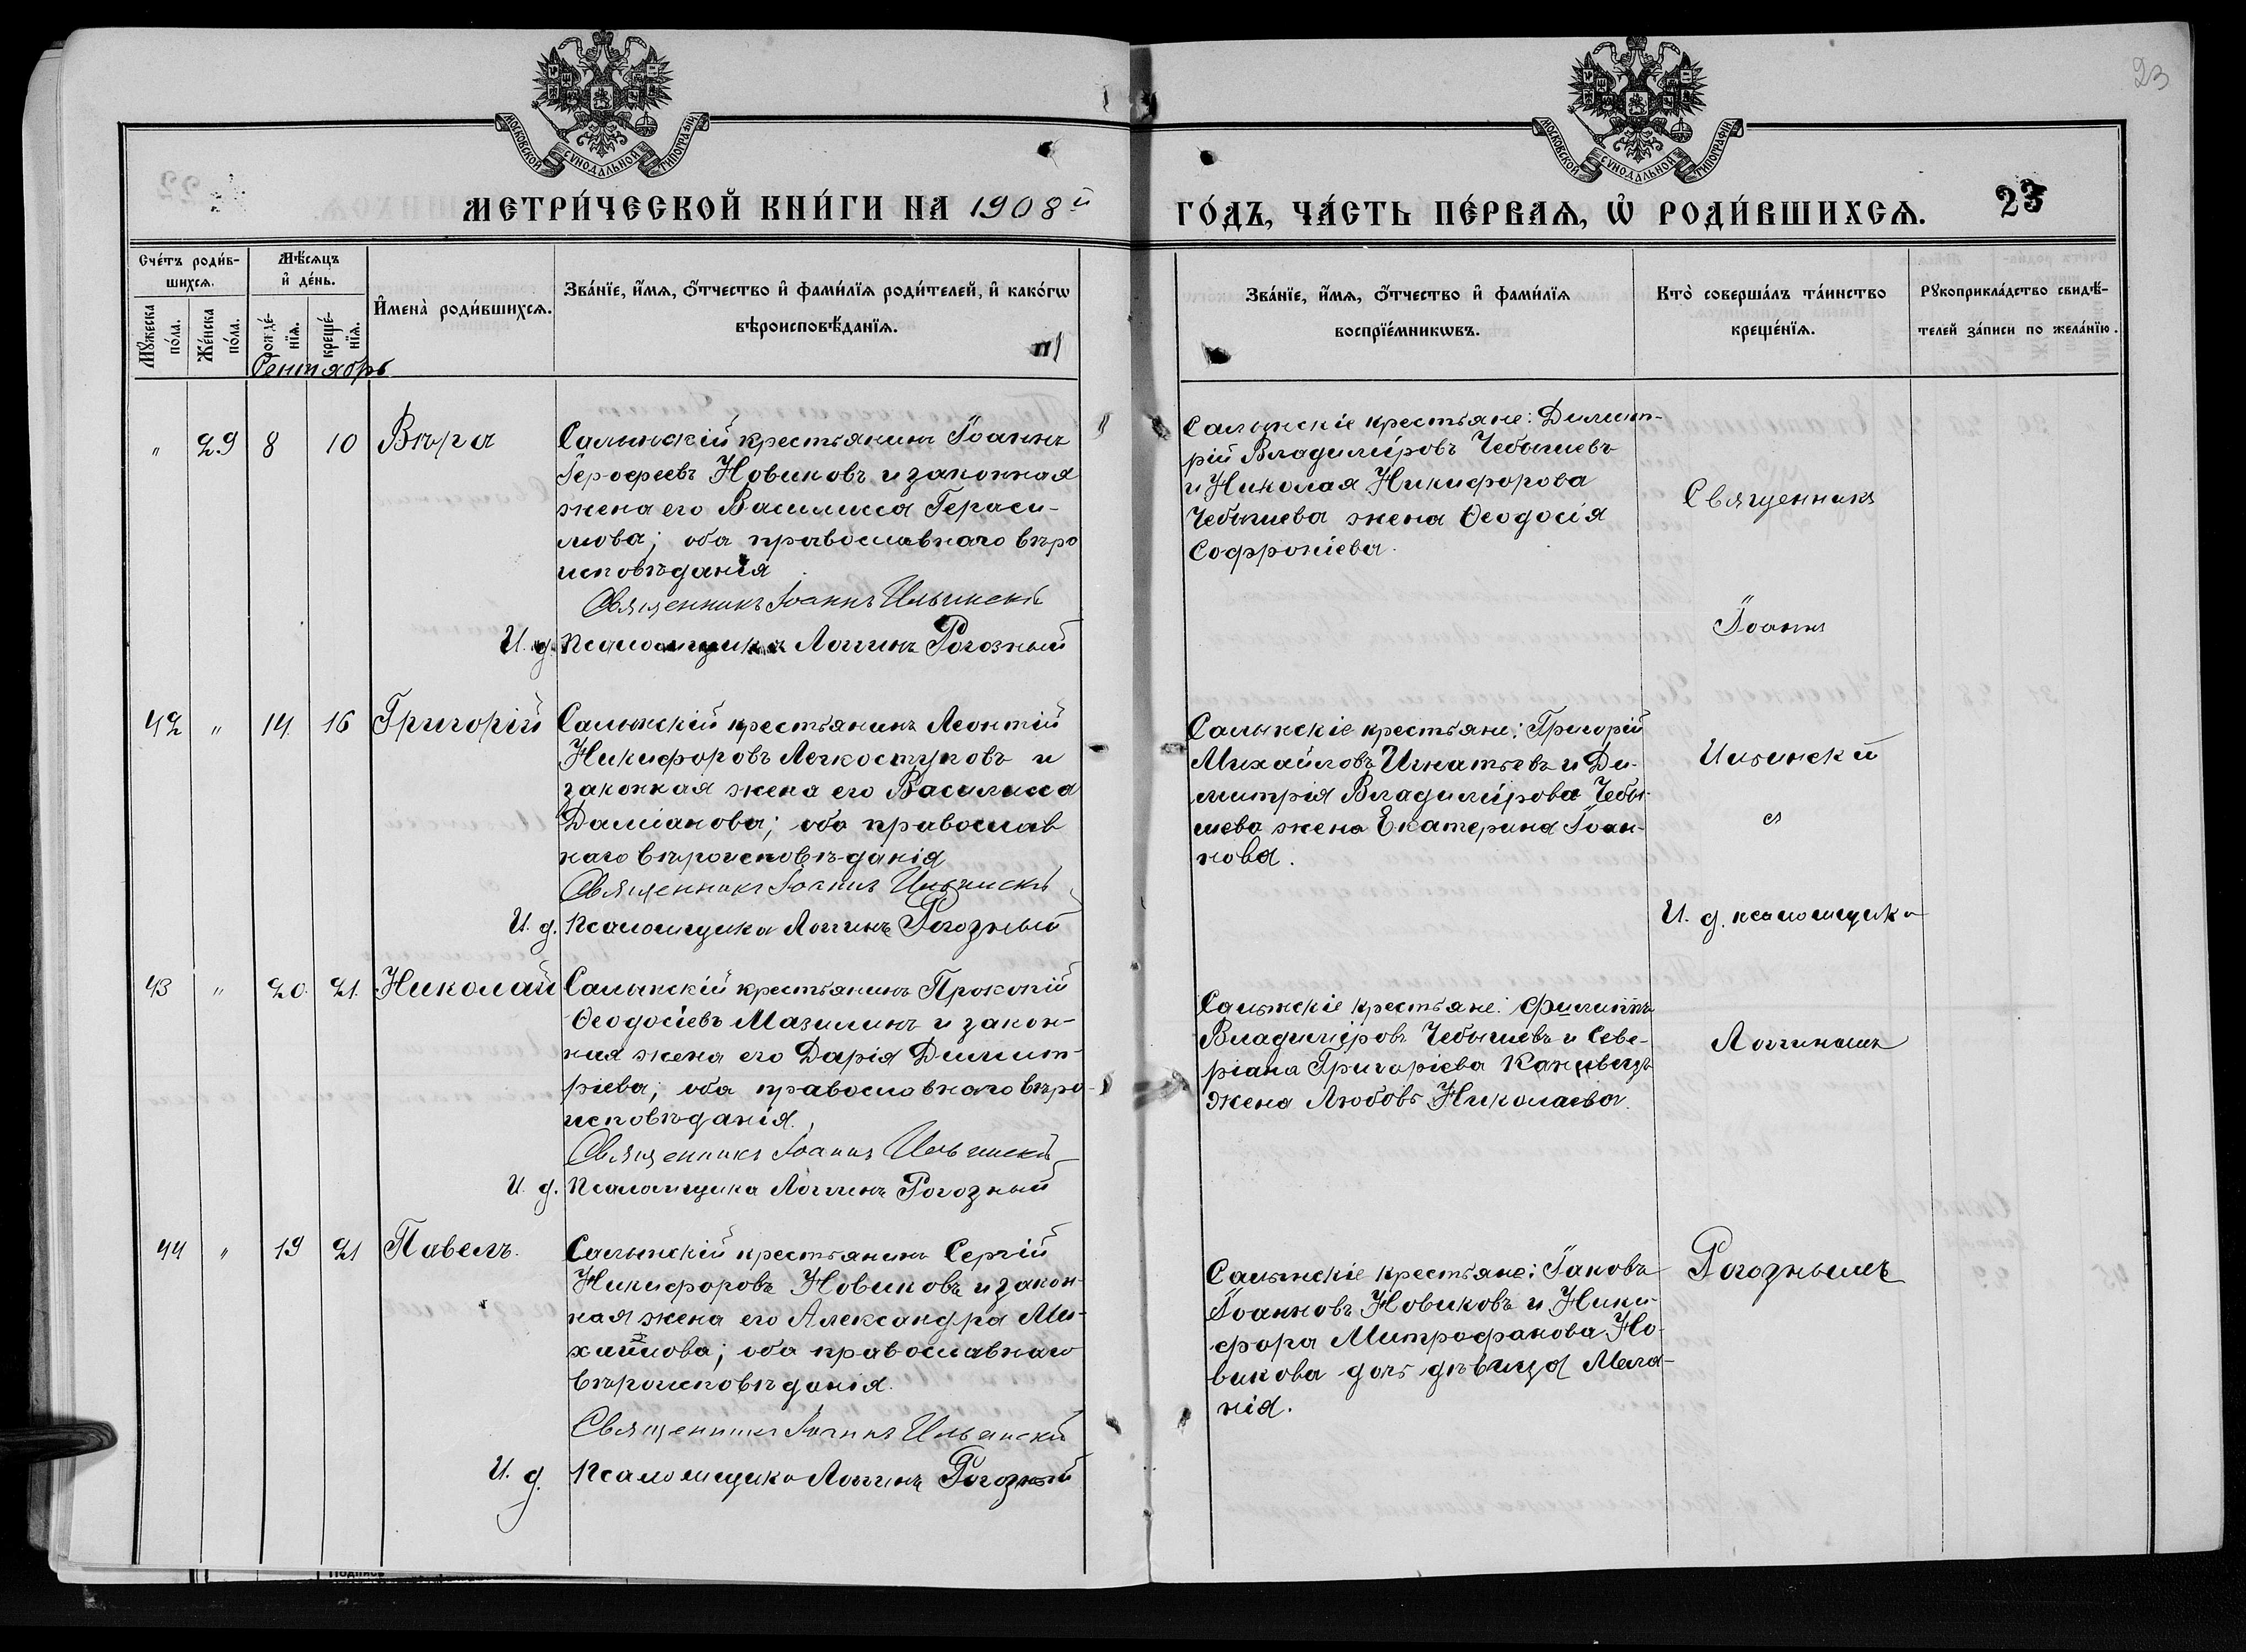 23
МОСКОВСКОЙ СѴНОДАЛЬНОЙ ТИПОГРАФІИ
МОСКОВСКОЙ СѴНОДАЛЬНОЙ ТИПОГРАФІИ
МЕТРИ́ЧЕСКОЙ КНИ́ГИ НА 1908й
ГО́ДЪ, ЧА́СТЬ ПЕ́РВАѦ, Ѡ҆ РОДИ́ВШИХСѦ. 23
Сче́тъ роди́в-
шихсѧ.
Мꙋ́жеска по́ла.
Же́нска по́ла.
Мѣ́сѧцъ
и҆ де́нь.
рожде́нїѧ.
креще́нїѧ.
И҆мена̀ роди́вшихсѧ.
Зва́нїе, и҆́мѧ, ѻ҆́тчество и҆ фами́лїѧ роди́телей, и҆ како́гѡ
вѣроисповѣ́данїѧ.
Зва́нїе, и҆́мѧ, ѻ҆́тчество и҆ фами́лїѧ
воспрїе́мникѡвъ.
Кто̀ соверша́лъ та́инство
креще́нїѧ.
Рꙋкоприкла́дство свидѣ́-
телей за́писи по жела́нїю.
Сентябрь
" 29 8 10 Вѣра
Салынскій крестьянинъ Іоаннъ
Іероѳеевъ Новиковъ и законная
жена его Василисса Гераси-
мова; оба православнаго вѣро
исповѣданія
Священникъ Іоаннъ Ильинскій
И. д. Псаломщика Логгинъ Рогозный
Салынскіе крестьяне: Димит-
рій Владиміровъ Чебышевъ
и Николая Никифорова
Чебышева жена Ѳеодосія
Софроніева.
42 " 14 16 Григорій
Салынскій крестьянинъ Леонтій
Никифоровъ Легкоступовъ и
законная жена его Василисса
Даміанова; оба православ
наго вѣроисповѣданія
Священникъ Іоаннъ Ильинскій
И. д. Псаломщика Логгинъ Рогозный
Салынскіе крестьяне: Григорій
Михайловъ Игнатьевъ и Ди-
митрія Владимірова Чебы-
шева жена Екатерина Іоан-
нова.
43 " 20. 21. Николай
Салынскій крестьянинъ Прокопій
Ѳеодосіевъ Мазилинъ и закон-
ная жена его Дарія Димит-
ріева; оба православнаго вѣро-
исповѣданія.
Священникъ Іоаннъ Ильинскій
И. д. Псаломщика Логгинъ Рогозный
Салынскіе крестьяне: Филиппъ
Владиміровъ Чебышевъ и Севе-
ріана Григоріева
жена Любовь Николаева.
44 " 19 21 Павелъ.
Салынскій крестьянинъ Сергій
Никифоровъ Новиковъ и закон-
ная жена его Александра Ми-
хайлова; оба православнаго
вѣроисповѣданія.
Священникъ Іоаннъ Ильинскій
И. д. Псаломщика Логгинъ Рогозный
Салынскіе крестьяне: Іаковъ
Іоанновъ Новиковъ и Ники-
фора Митрофанова Но-
викова дочь дѣвица Мела-
нія.
Священникъ
Іоаннъ
Ильинскій
съ
И. д. псаломщика
Логгиномъ
Рогознымъ
Подпись